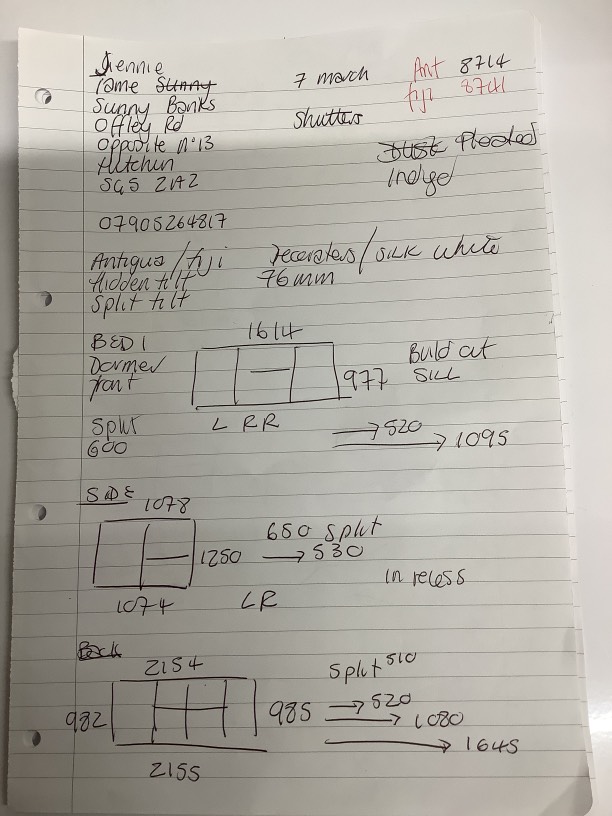 Jennie
Tame Sunny
Sunny Banks
Offley Rd
Opposite n°13
Hitchin
SG5 2AZ
07905264817
7 march
Shutters
Ant 8714
fiji 8741
Pleated
Antigua / fiji
Hidden tilt
Split tilt
/ Silk white
76mm
BED 1
Dormer
front
1614
977
Build out
Sill
Split
600
L RR
520
1095
SIDE
1078
1250
1074
LR
650 Split
530
In recess
Back
2154
982
985
2155
Split 510
520
1080
1645